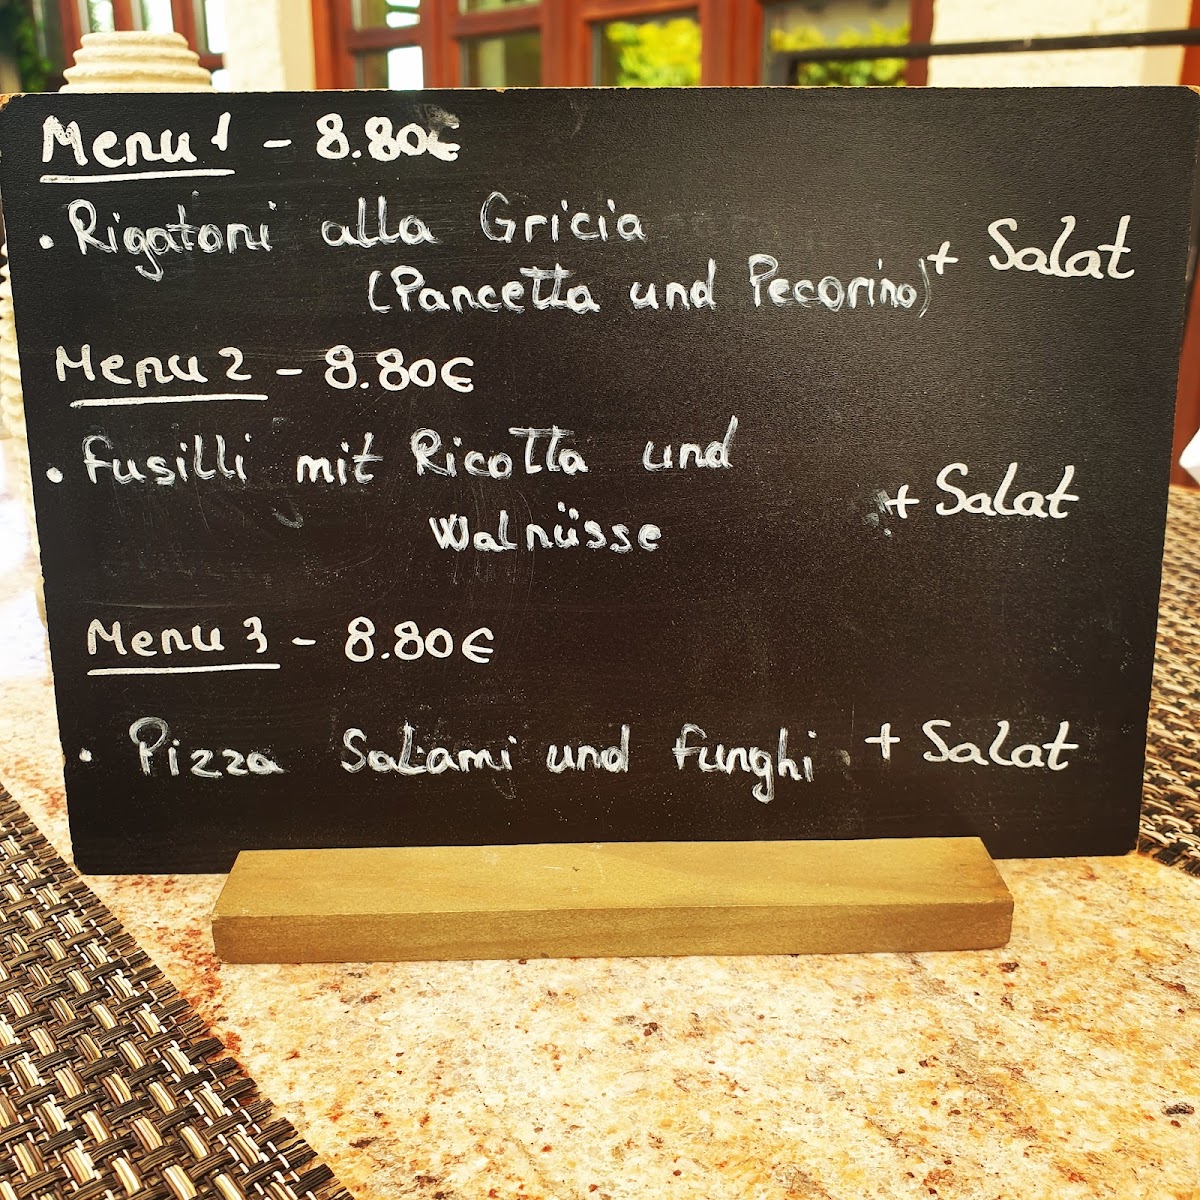 Menu 1 - 8.80€
• Rigatoni alla Gricia
(Pancetta und Pecorino) + Salat
Menu 2 - 8.80€
• Fusilli mit Ricotta und
Walnüsse + Salat
Menu 3 - 8.80€
• Pizza Salami und funghi + Salat